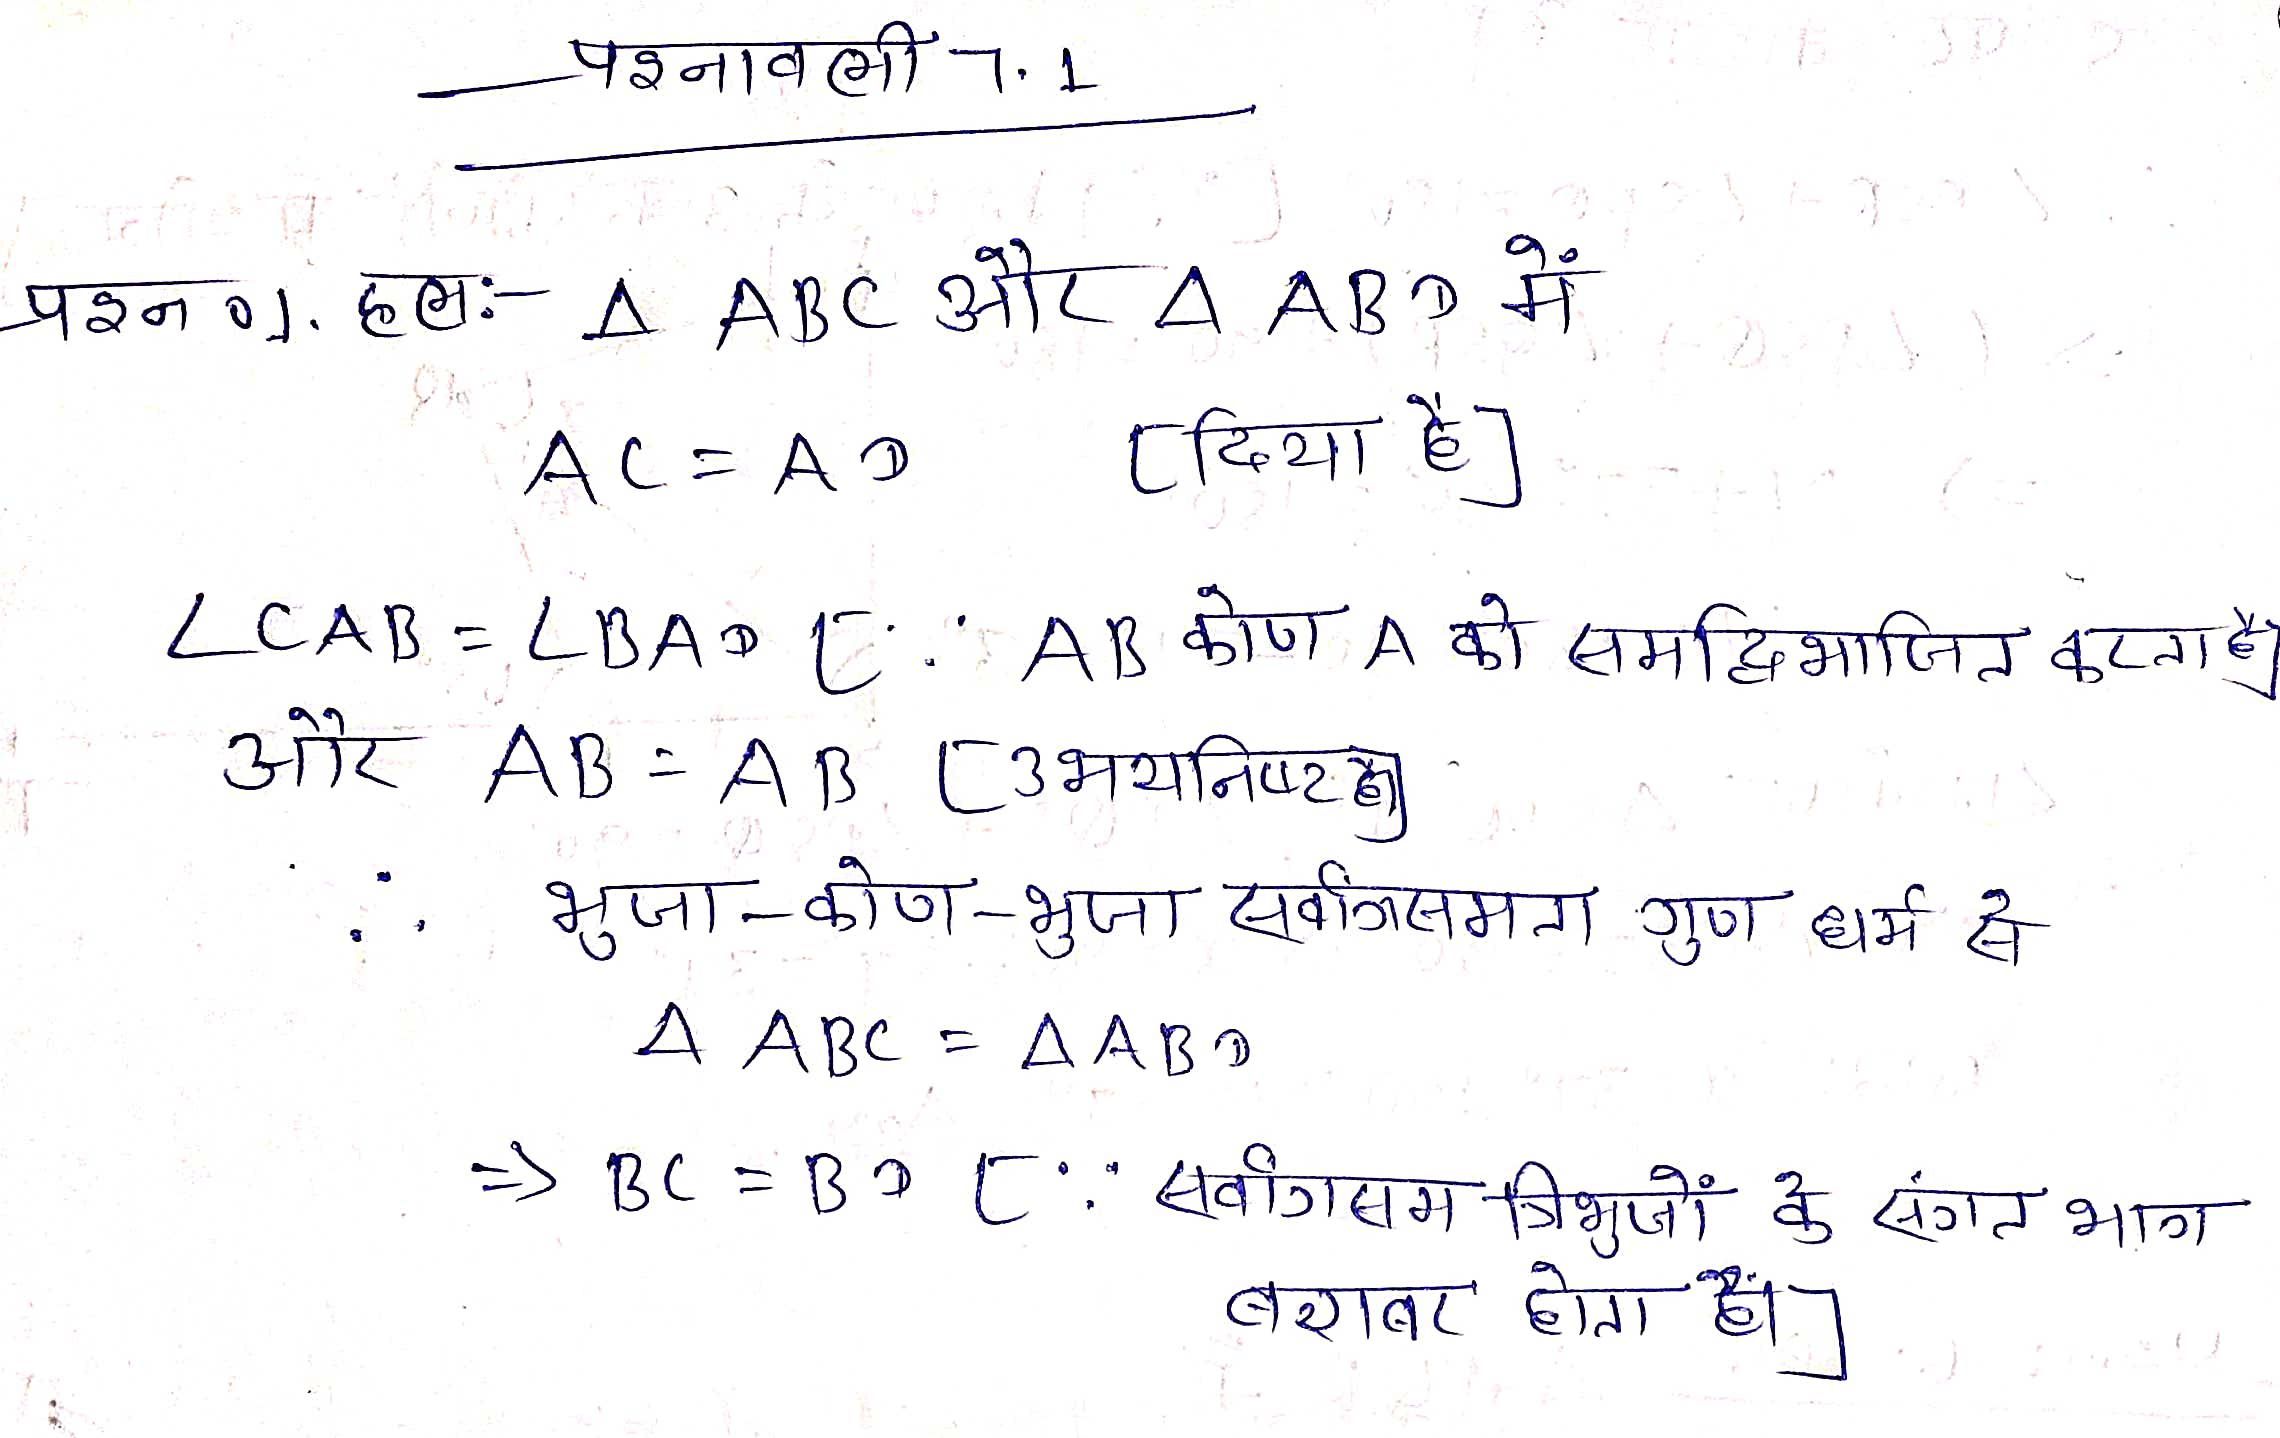 प्रश्नावली 7.1
प्रश्न 01. हलः- Δ ABC और Δ ABD में
AC = AD [दिया है]
∠CAB = ∠BAD [∵ AB कोण A को समद्विभाजित करता है]
और AB = AB [उभयनिष्ट है]
∴ भुजा-कोण-भुजा सर्वांगसमता गुण धर्म से
Δ ABC = Δ ABD
=> BC = BD [∵ सर्वांगसम त्रिभुजों के संगत भाग
बराबर होता है।]